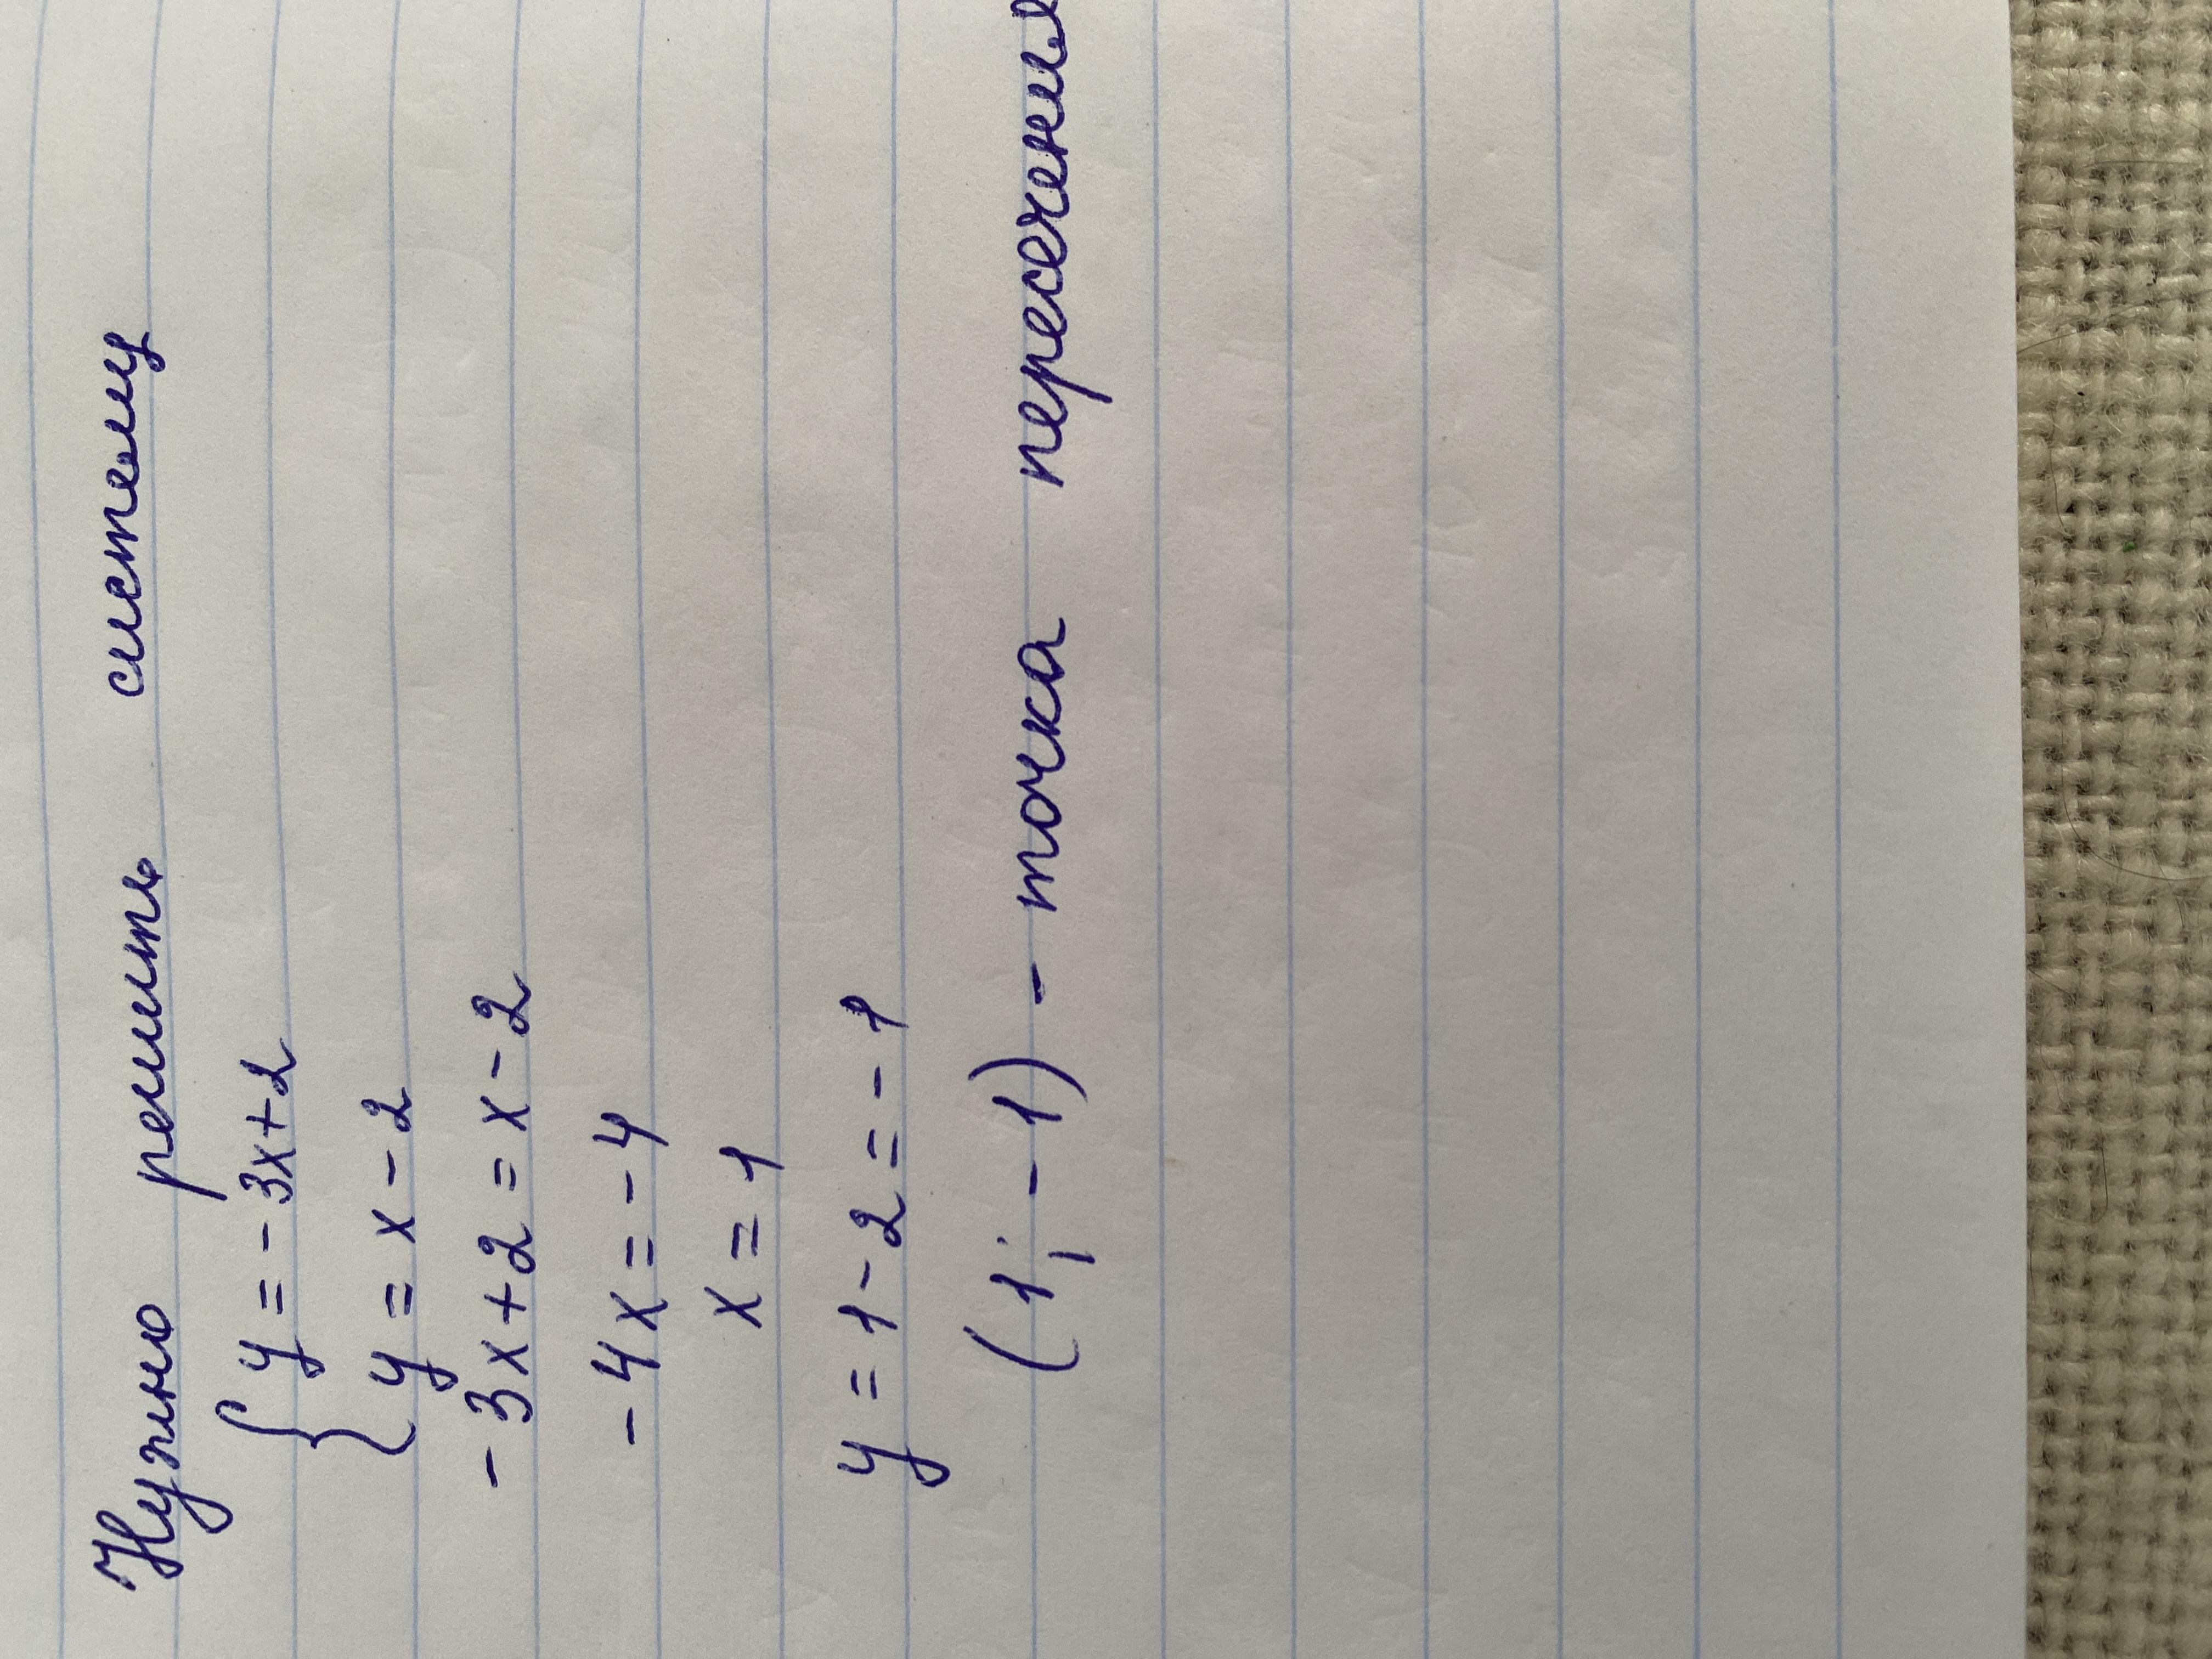 Нужно решить систему
{ y = - 3x+2
{ y = x - 2
- 3x+2 = x - 2
- 4x = - 4
x = 1
y = 1 - 2 = - 1
(1; - 1) - точка пересечения